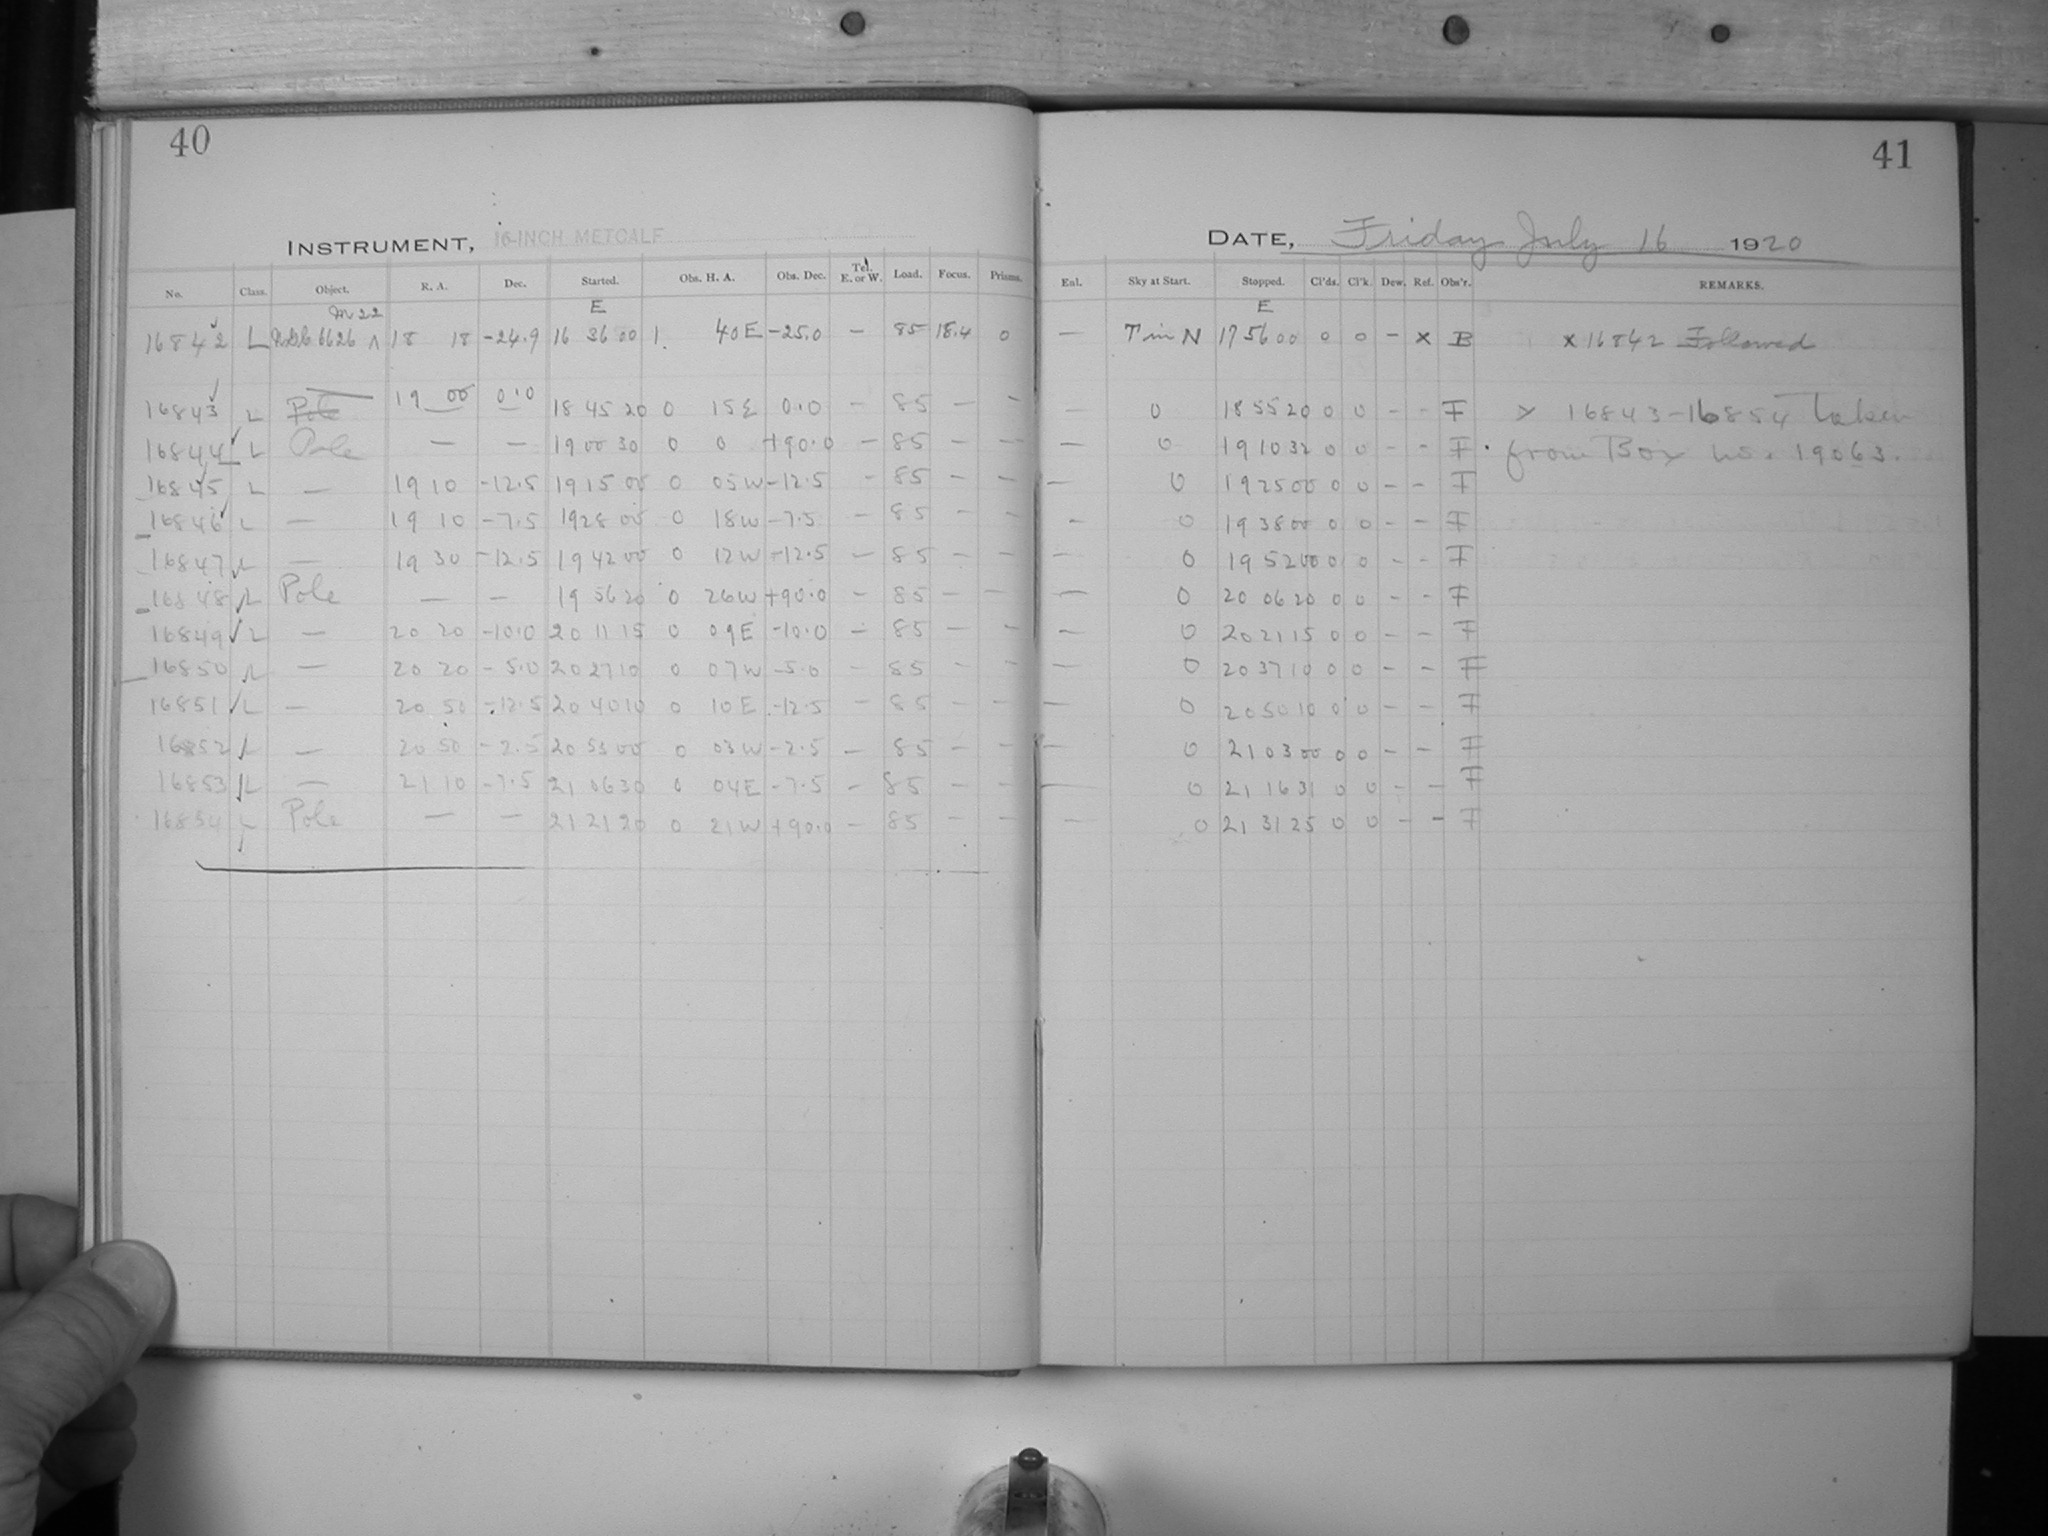 40
41
INSTRUMENT, 16-INCH METCALF
DATE, Friday July 16 1920
No. Class. Object. R. A. Dec. Started. Obs. H. A. Obs. Dec. Tel. E. or W. Load. Focus. Prisms. Enl. Sky at Start. Stopped. Cl'ds. Cl'k. Dew. Ref. Obs'r. REMARKS.
M 22 E E
16842 L N.G.C. 6626 ^ 18 18 -24.9 16 36 00 1 40 E -25.0 - 85 18.4 0 - T in N 17 56 00 0 0 - x B x 16842 Followed
16843 L Pole 19 00 0.0 18 45 20 0 15 E 0.0 - 85 - - - 0 18 55 20 0 0 - - F > 16843-16854 taken
16844 L Pole - - 19 00 30 0 0 +90.0 - 85 - - - 0 19 10 32 0 0 - - F . from Box no. 19063.
16845 L - 19 10 -12.5 19 15 00 0 05 W -12.5 - 85 - - - 0 19 25 00 0 0 - - F
16846 L - 19 10 -7.5 19 28 00 0 18 W -7.5 - 85 - - - 0 19 38 00 0 0 - - F
16847 L - 19 30 -12.5 19 42 00 0 12 W -12.5 - 85 - - - 0 19 52 00 0 0 - - F
16848 L Pole - - 19 56 20 0 26 W +90.0 - 85 - - - 0 20 06 20 0 0 - - F
16849 L - 20 20 -10.0 20 11 15 0 09 E -10.0 - 85 - - - 0 20 21 15 0 0 - - F
16850 L - 20 20 -5.0 20 27 10 0 07 W -5.0 - 85 - - - 0 20 37 10 0 0 - - F
16851 L - 20 50 -12.5 20 40 10 0 10 E -12.5 - 85 - - - 0 20 50 10 0 0 - - F
16852 L - 20 50 -2.5 20 53 00 0 03 W -2.5 - 85 - - - 0 21 03 00 0 0 - - F
16853 L - 21 10 -7.5 21 06 30 0 04 E -7.5 - 85 - - - 0 21 16 31 0 0 - - F
16854 L Pole - - 21 21 20 0 21 W +90.0 - 85 - - - 0 21 31 25 0 0 - - F